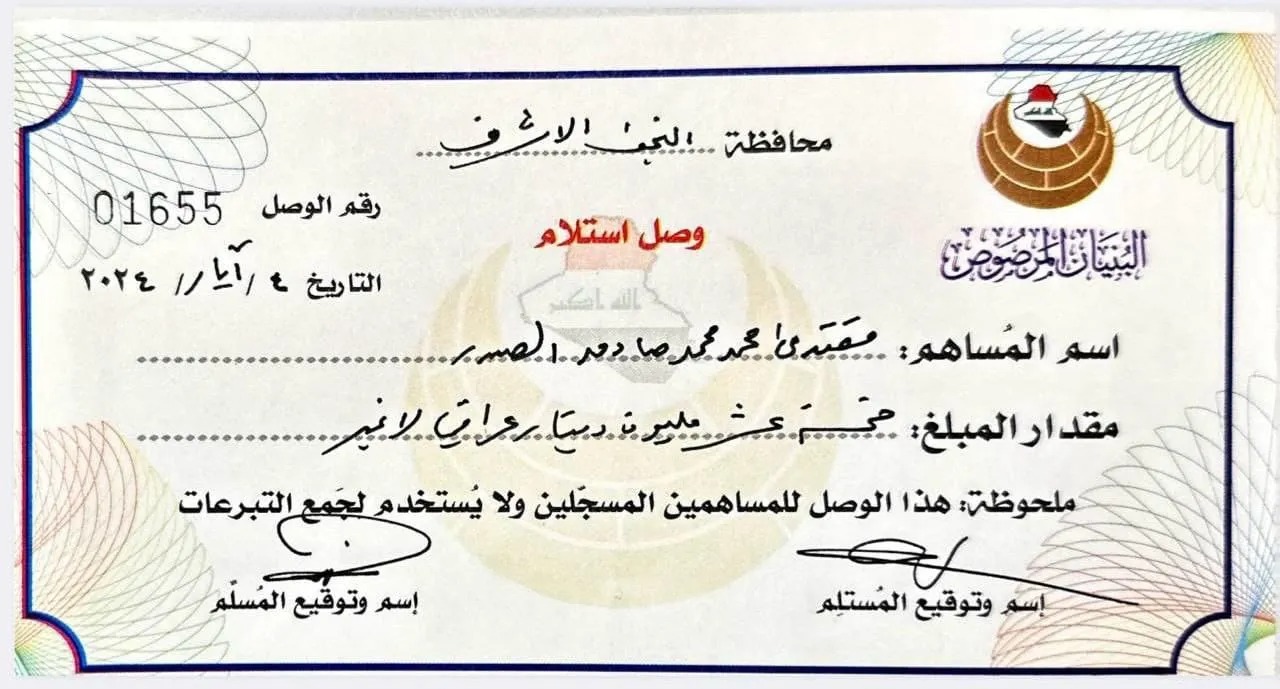 محافظة النجف الاشرف
البُنيَان المَرصُوص
رقم الوصل 01655
وصل استلام
التاريخ ٤ / أيار / ٢٠٢٤
الله اكبر
اسم المُساهم: مقتدى محمد محمد صادق الصدر
مقدار المبلغ: خمسة عشر مليون دينار عراقي لا غير
ملحوظة: هذا الوصل للمساهمين المسجّلين ولا يُستخدم لجَمع التبرعات
إسم وتوقيع المُستلِم
إسم وتوقيع المُسلّم